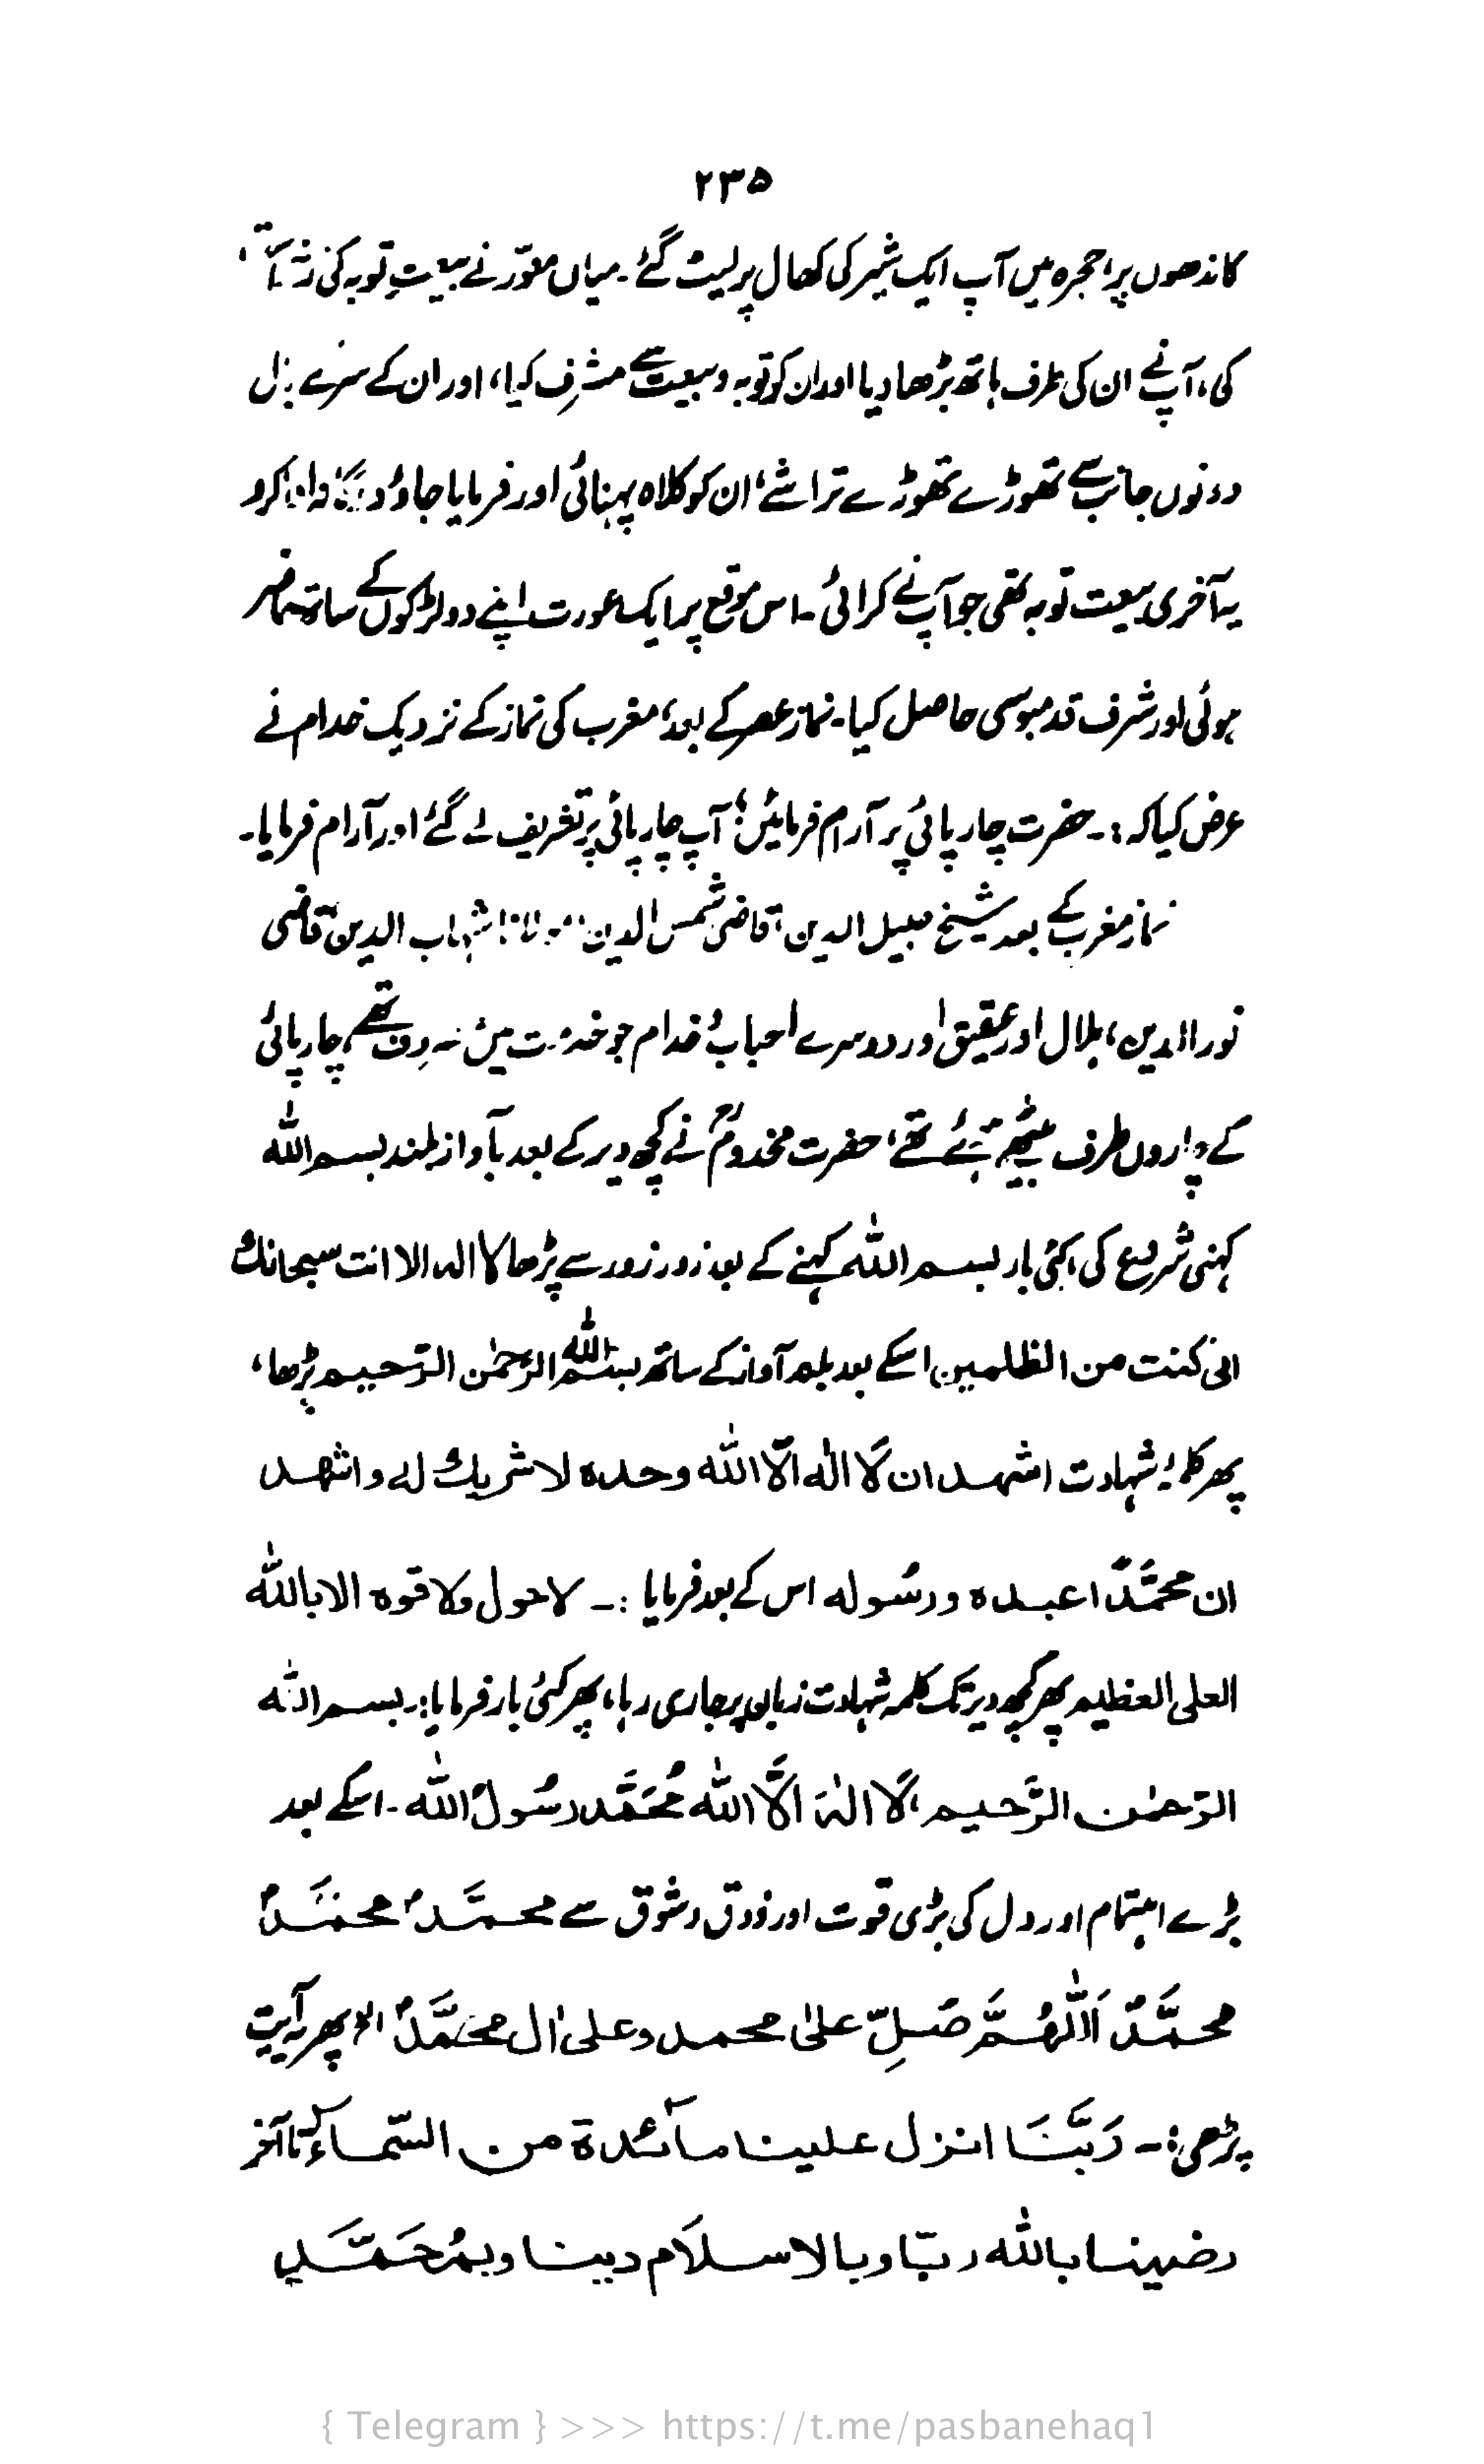 ۲۳۵
کاندھوں پر، حجرہ میں آپ ایک شیر کی کھال پر لیٹ گئے۔ میاں منوّر نے بیعتِ توبہ کی
کی، آپ نے ان کی طرف ہاتھ بڑھا دیا اور ان کو توبہ و بیعت سے مشرف کیا، اور ان کے سر کے بال
دونوں جانب سے تھوڑے تھوڑے تراشے، ان کو کلاہ پہنائی اور فرمایا جاؤ ادا کرو
یہ آخری بیعت توبہ تھی جو آپ نے کرائی۔ اس موقع پر ایک عورت اپنے دو لڑکوں کے ساتھ حاضر
ہوئی اور شرف قدمبوسی حاصل کیا۔ نماز عصر کے بعد، مغرب کی نماز کے نزدیک خدام نے
عرض کیا کہ :۔ حضرت چارپائی پر آرام فرمائیں؛ آپ چارپائی پر تشریف لے گئے اور آرام فرمایا۔
نماز مغرب کے بعد شیخ جلیل الدین، قاضی شمس الدین، مولانا شہاب الدین، قاضی
نور الدین، ہلال اور عقیق اور دوسرے احباب و خدام جو خدمت میں تھے، چارپائی
کے چاروں طرف بیٹھے ہوئے تھے، حضرت مخدومؒ نے کچھ دیر کے بعد بآواز بلند بسم اللہ
کہنی شروع کی، کئی بار بسم اللہ کہنے کے بعد زور زور سے پڑھا لا الہ الا انت سبحانک
انی کنت من الظلمین، اسکے بعد بلند آواز کے ساتھ بسم اللہ الرحمٰن الرّحیم پڑھا،
پھر کلمۂ شہادت اشہد ان لّا الٰہ الّا اللہ وحدہ لا شریک لہ و اشھد
ان محمّدًا عبدہ و رسُولہ اس کے بعد فرمایا :۔ لا حول ولا قوہ الا باللہ
العلی العظیم پھر کچھ دیر تک کلمہ شہادت زبان پر جاری رہا، پھر کئی بار فرمایا: بسم اللہ
الرّحمٰن الرَّحیم، لَا الٰہَ الَّا اللہ مُحَمَّد رسُولُ اللہ ۔ اسکے بعد
بڑے اہتمام اور دل کی بڑی قوت اور ذوق و شوق سے محمَّدٌ محمَّدٌ
محمَّدٌ اَللّٰھُمَّ صَلِّ علیٰ محمد وعلیٰ اٰل محمَّدٍ الخ پھر یہ آیت
پڑھی:۔ رَبَّنَا انزل علینا مآئدۃ من السّماء تا آخر
رضینا باللہ ربّا وبالاسلَام دینا وبمُحَمَّدٍ
{ Telegram } >>> https://t.me/pasbanehaq1